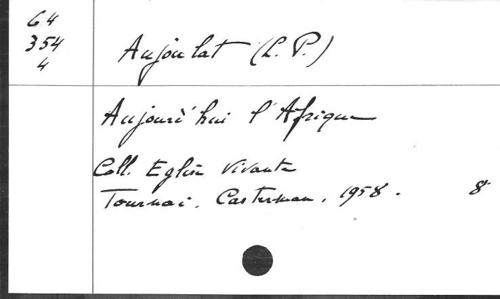 64
354
4
Aujoulat (L. P.)
Aujourd'hui l'Afrique
Coll. Eglise Vivante
Tournai. Casterman, 1958. 8°